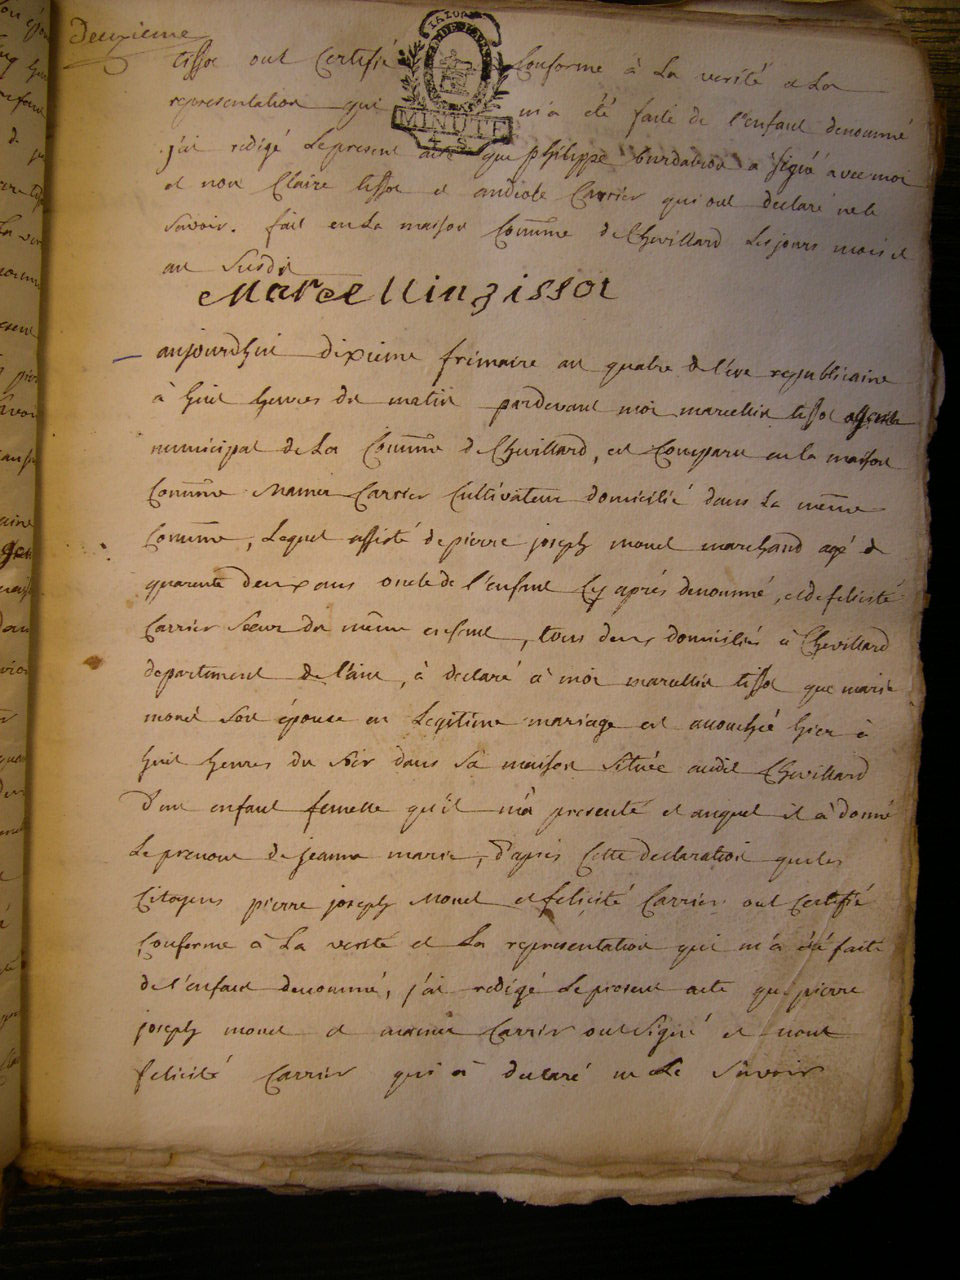 Deuxieme
tissot ont certifié conforme à la verité et la
representation qui m'a été faite de l'enfant denommé
MINUTE
j'ai redigé le present acte que philippe burdallion a signé avec moi
et non Claire tissot et Carrier qui ont declaré ne le
savoir. fait en la maison Comme de Chevillard les jours mois et
an susdit
Marcellin Tissot
aujourdhui dixieme frimaire an quatre de l'ere republicaine
à huit heures du matin pardevant moi marcellin tissot agent
municipal de la Comme de Chevillard, est Comparu en la maison
Comme mamer Carrier Cultivateur domicilié dans la meme
Comme, lequel assisté de pierre joseph monet marchand agé de
quarente deux ans oncle de l'enfant Cy aprés denommé, et de felicité
Carrier sœur du même enfant, tous deux domiciliés à Chevillard
departement de l'ain, à declaré à moi marcellin tissot que marie
monet son épouse en legitime mariage est accouchée hier à
huit heures du soir dans sa maison située audit Chevillard
d'un enfant femelle qu'il m'a presenté et auquel il à donné
le prenom de jeanne marie, d'apres Cette declaration que les
Citoyens pierre joseph monet et felicité Carrier ont certifié
Conforme à la verité et la representation qui m'a été faite
de l'enfant denommé, j'ai redigé le present acte que pierre
joseph monet et mamer Carrier ont signé et nont
felicité Carrier qui à declaré ne le savoir